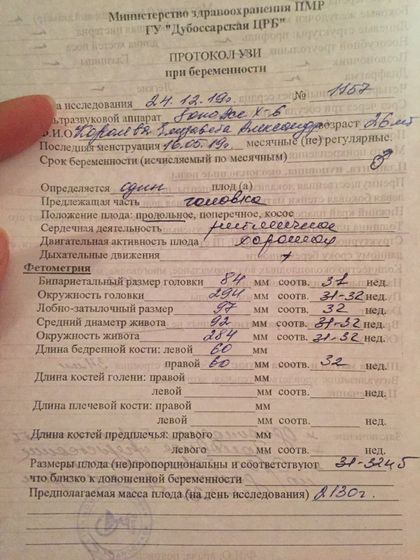 Министерство здравоохранения ПМР
ГУ "Дубоссарская ЦРБ"
ПРОТОКОЛ УЗИ
при беременности
а исследования 24.12.19г. № 1157
льтразвуковой аппарат Sonoace X-6
Ф.И.О. Елизавета возраст 26 лет
Последняя менструация 16.05.19г. месячные (не) регулярные.
Срок беременности (исчисляемый по месячным)
Определяется один плод (а)
Предлежащая часть головка
Положение плода: продольное, поперечное, косое
Сердечная деятельность ритмичная
Двигательная активность плода хорошая
Дыхательные движения +
Фетометрия
Бипариетальный размер головки 84 мм соотв. 31 нед.
Окружность головки 294 мм соотв. 31-32 нед.
Лобно-затылочный размер 97 мм соотв. 32 нед.
Средний диаметр живота 92 мм соотв. 31-32 нед.
Окружность живота 284 мм соотв. 31-32 нед.
Длина бедренной кости: левой 60 мм
правой 60 мм соотв. 32 нед.
Длина костей голени: правой мм
левой мм соотв. нед.
Длина плечевой кости: правой мм
левой мм соотв. нед.
Длина костей предплечья: правого мм
левого мм соотв. нед.
Размеры плода (не)пропорциональны и соответствуют 31-32
что близко к доношенной беременности
Предполагаемая масса плода (на день исследования) 2130г.